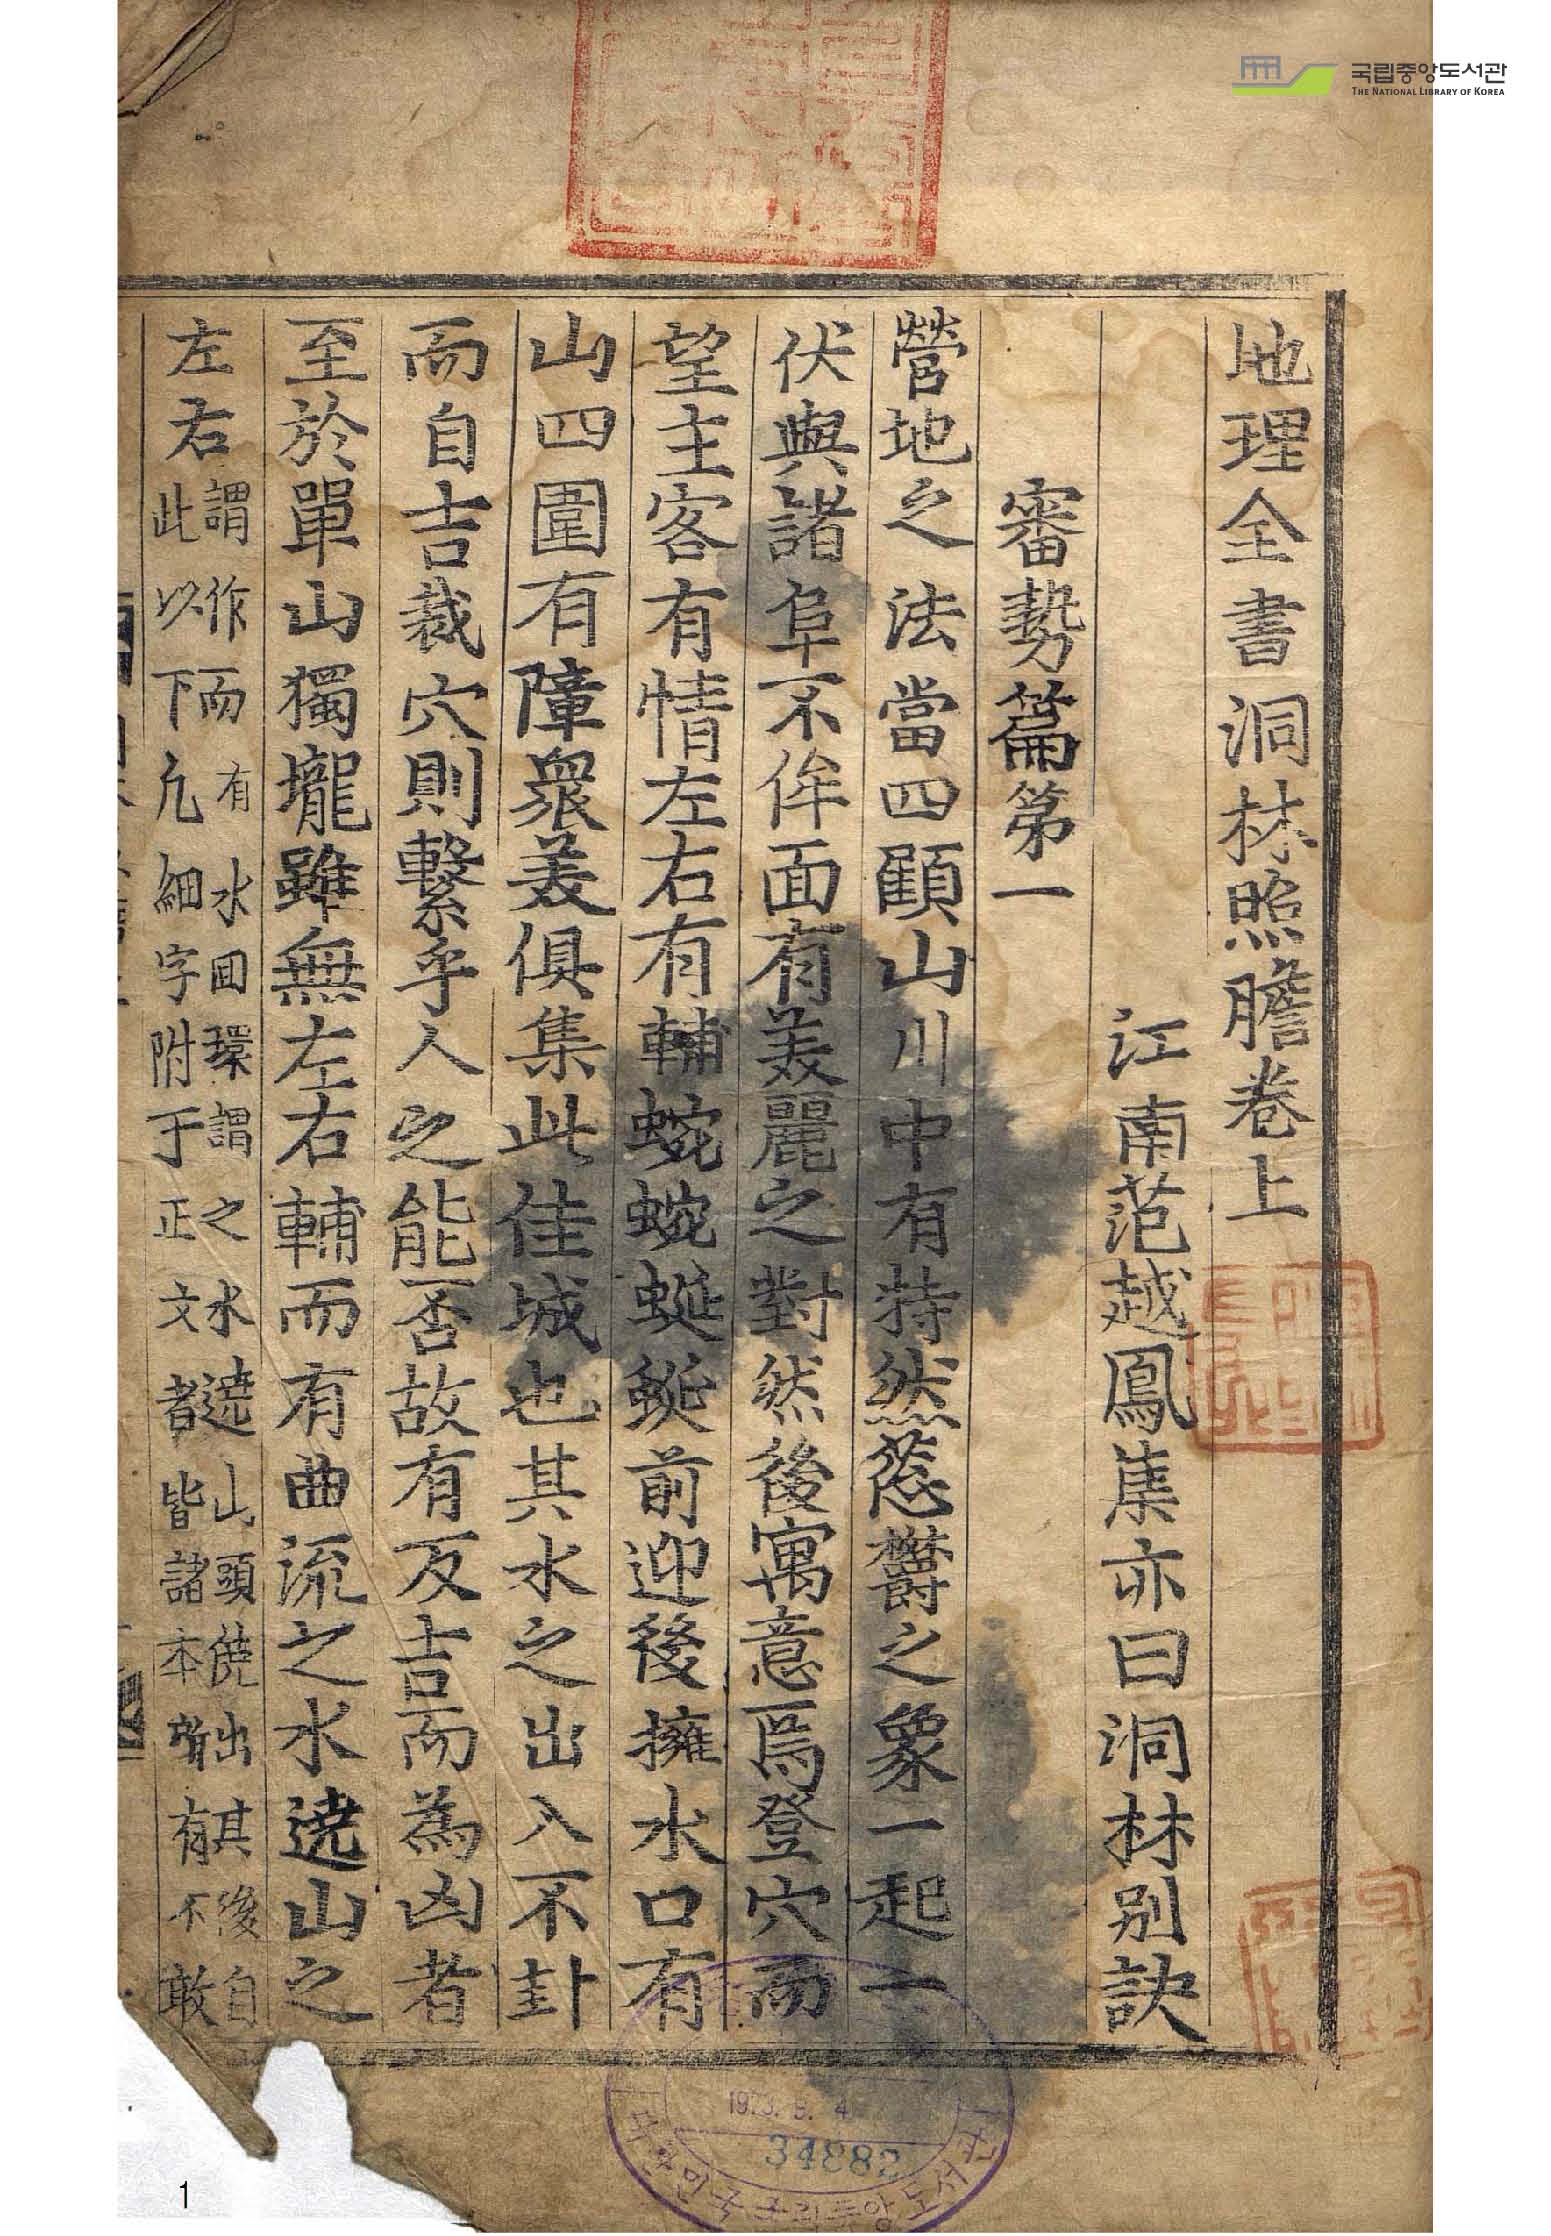 地理全書洞林照膽卷上
江南范越鳳集亦曰洞林別訣
審勢篇第一
營地之法當四顧山川中有特然蔥欝之象一起一
伏與諸阜不侔面有美麗之對然後寓意焉登穴而
望主客有情左右有輔蜿蜿蜒蜒前迎後擁水口有
山四圍有障衆美俱集此佳城也其水之出入不卦
而自吉裁穴則繫乎人之能否故有反吉而為凶者
至於單山獨壠雖無左右輔而有曲流之水遶山之
左右
謂作而有水囬環謂之水遶山頭饒出其後自
此以下凢細字附于正文者皆諸本所有不敢
국립중앙도서관
THE NATIONAL LIBRARY OF KOREA
1973. 34882
대한민국국립중앙도서관
1